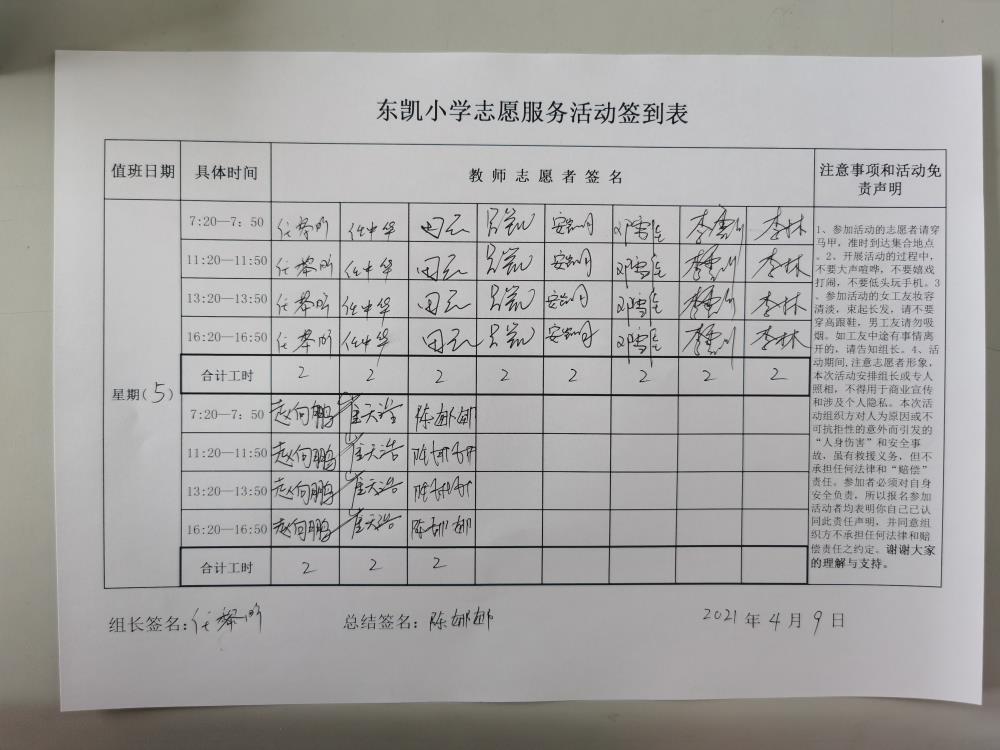 东凯小学志愿服务活动签到表
值班日期 具体时间 教师志愿者签名 注意事项和活动免责声明
星期(5)
7:20—7:50 任 任中华 田 吕凯 安 邓雪 李 李林
11:20—11:50 任 任中华 田 吕凯 安 邓雪 李 李林
13:20—13:50 任 任中华 田 吕凯 安 邓雪 李 李林
16:20—16:50 任 任中华 田 吕凯 安 邓雪 李 李林
合计工时 2 2 2 2 2 2 2 2
7:20—7:50 赵向鹏 崔天浩 陈娜娜
11:20—11:50 赵向鹏 崔天浩 陈娜娜
13:20—13:50 赵向鹏 崔天浩 陈娜娜
16:20—16:50 赵向鹏 崔天浩 陈娜娜
合计工时 2 2 2
1、参加活动的志愿者请穿
马甲，准时到达集合地点
。2、开展活动的过程中，
不要大声喧哗，不要嬉戏
打闹，不要低头玩手机。3
、参加活动的女工友妆容
清淡，束起长发，请不要
穿高跟鞋，男工友请勿吸
烟。如工友中途有事情离
开的，请告知组长。4、活
动期间，注意志愿者形象，
本次活动安排组长或专人
照相，不得用于商业宣传
和涉及个人隐私。本次活
动组织方对人为原因或不
可抗拒性的意外而引发的
“人身伤害”和安全事
故，虽有救援义务，但不
承担任何法律和“赔偿”
责任。参加者必须对自身
安全负责，所以报名参加
活动者均表明你自己已认
同此责任声明，并同意组
织方不承担任何法律和赔
偿责任之约定。谢谢大家
的理解与支持。
组长签名:任 总结签名: 陈娜娜 2021年4月9日